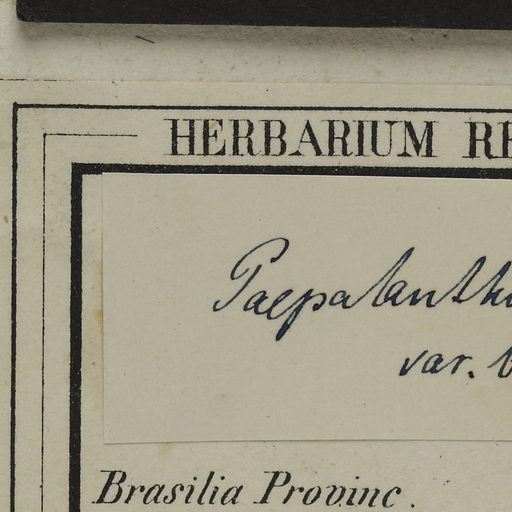 HERBARIUM
Paepalanth
var.
Brasilia Provinc.